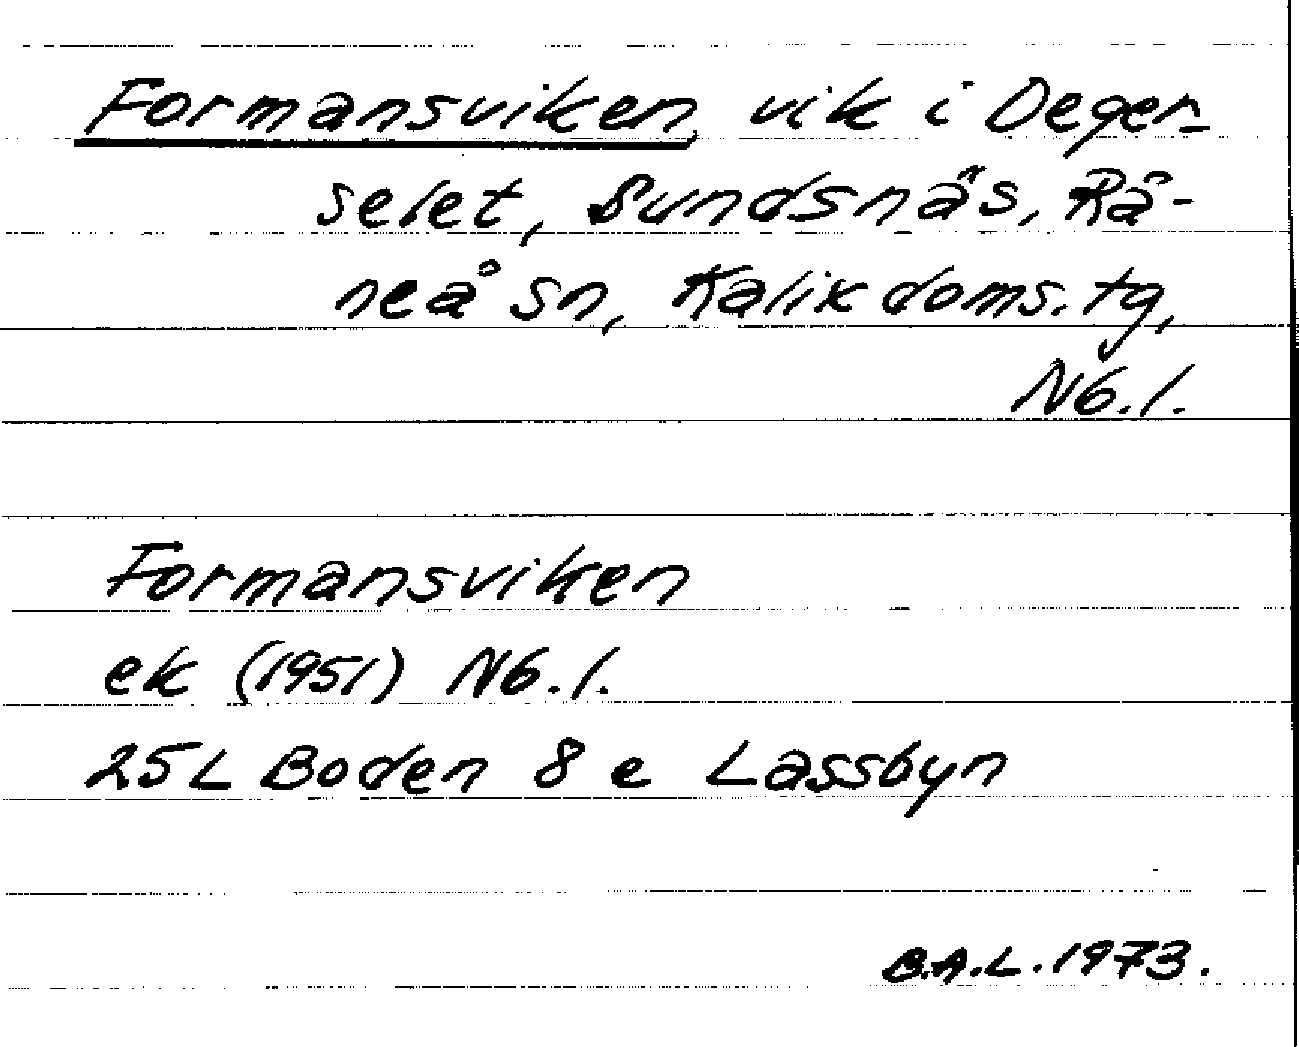 Formansviken, vik i Deger-
selet, Sundsnäs, Rå-
neå sn, Kalix doms.tg,
Nb.l.
Formansviken
ek (1951) Nb.l.
25L Boden 8 e Lassbyn
B.A.L. 1973.